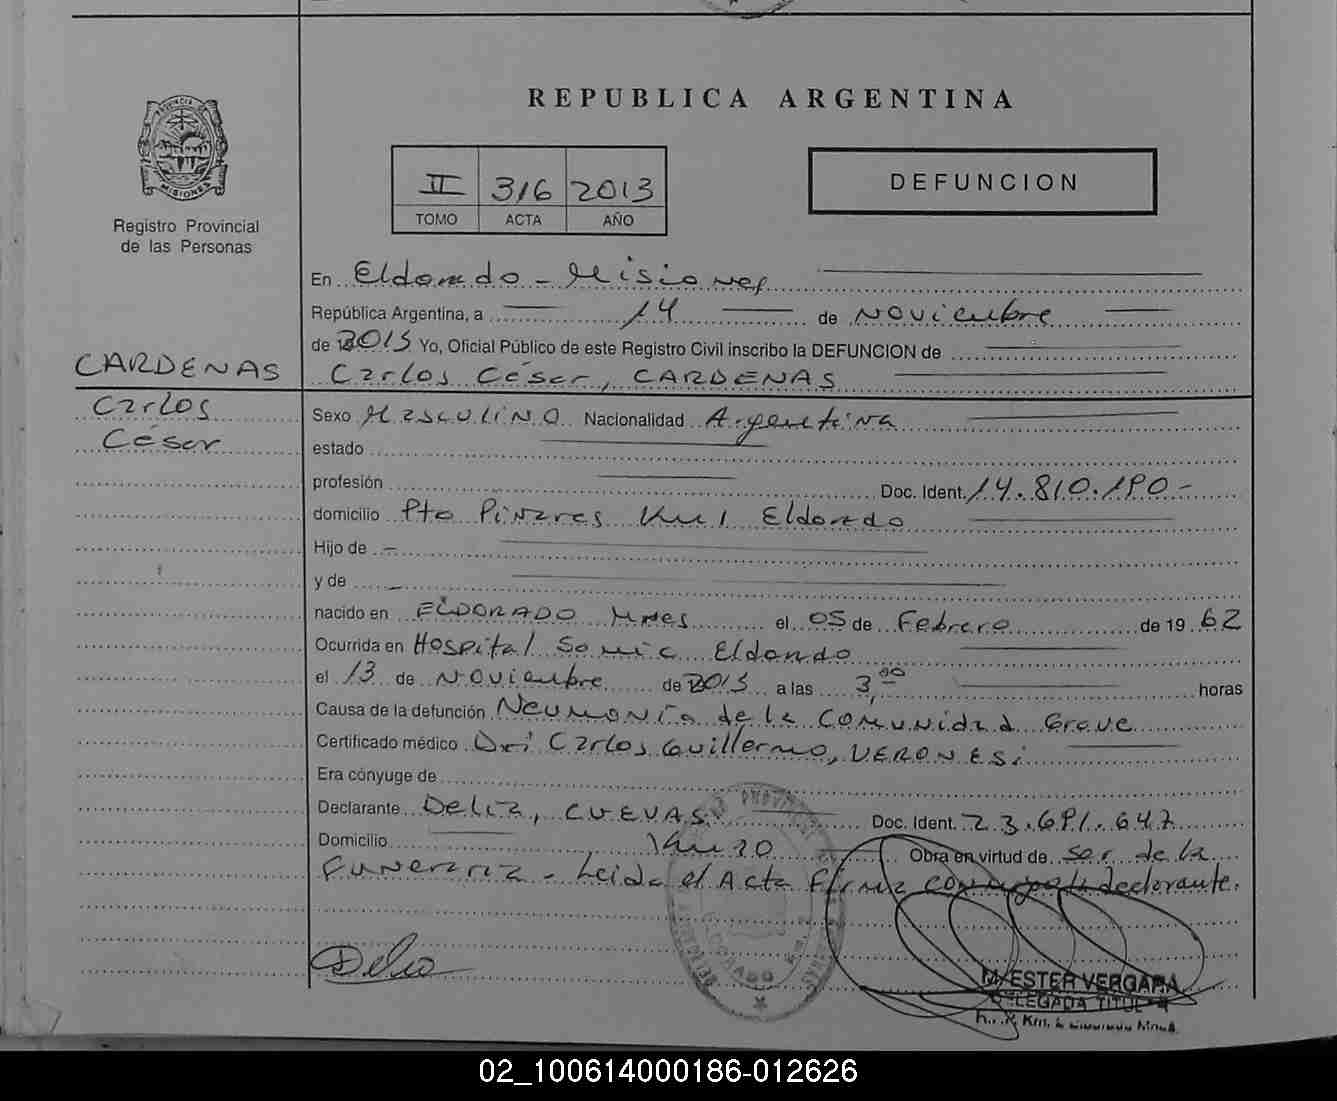 REPUBLICA ARGENTINA
PROVINCIA DE
MISIONES
Registro Provincial
de las Personas
II 316 2013
TOMO ACTA AÑO
DEFUNCION
En Eldorado - Misiones
República Argentina, a 14 de Noviembre
de 2013 Yo, Oficial Público de este Registro Civil inscribo la DEFUNCION de
CARDENAS
Carlos César, CARDENAS
Carlos
César
Sexo Masculino Nacionalidad Argentina
estado
profesión Doc. Ident. 14.810.190-
domicilio Pto Pinares Km 1 Eldorado
Hijo de -
y de -
nacido en ELDORADO Mnes el 05 de Febrero de 19 62
Ocurrida en Hospital Samic Eldorado
el 13 de Noviembre de 2013 a las 3,00 horas
Causa de la defunción Neumonía de la Comunidad Grave
Certificado médico Dr: Carlos Guillermo, VERONESi
Era cónyuge de
Declarante Delia, CUEVAS Doc. Ident. 23.691.647
Domicilio Km 20 Obra en virtud de ser de la
Funeraria - Leida el Acta Firma conmigo la declarante.
Delia
M. ESTER VERGARA
DELEGADA TITULAR
02_100614000186-012626